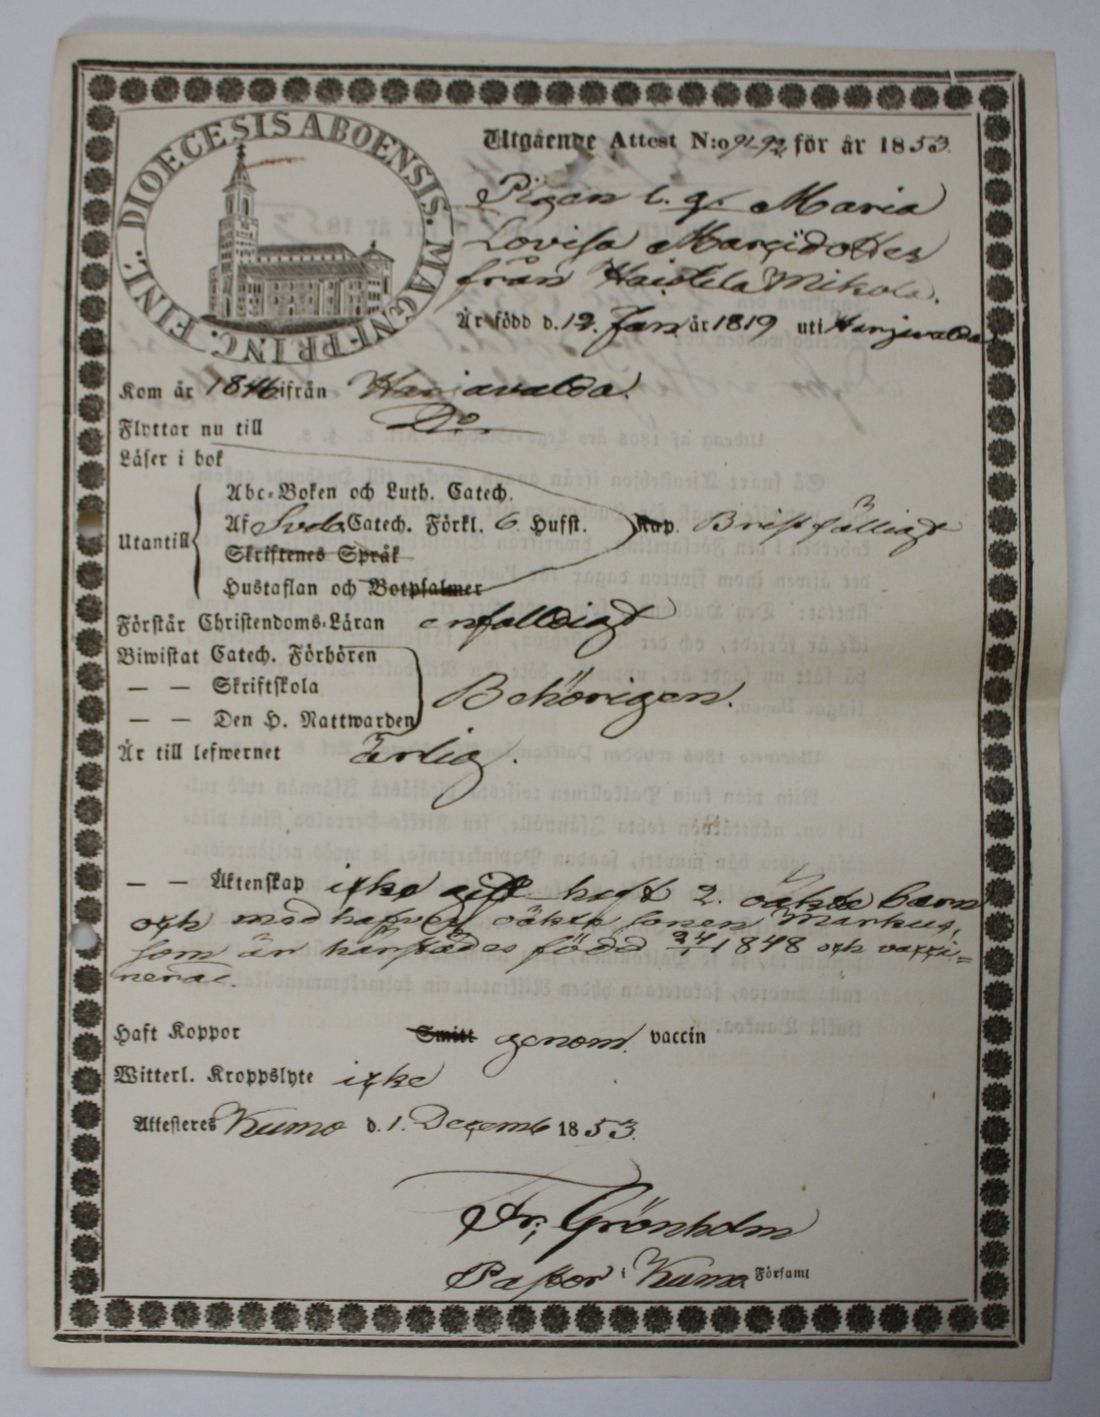 DIOECESIS ABOENSIS. MAGNI-PRINC. FINL.
Utgående Attest N:o 91-92 för år 1853.
Pigan l. q. Maria
Lovisa Marcidotter
från Haistila Mikola.
Är född d. 19. Jan år 1819 uti Harjavalda
Kom år 1846 ifrån Harjavalda.
Flyttar nu till Do.
Läser i bok
Abc-Boken och Luth. Catech.
Utantill Af Sveb. Catech. Förkl. 6 Hufst. Kap. Bristfälligt
Skriftenes Språk
Hustaflan och Botpsalmer
Förstår Christendoms-Läran enfalldigt
Biwistat Catech. Förhören
— — Skriftskola Behörigen.
— — Den H. Nattwarden
Är till lefwernet Ärlig.
— — Äktenskap icke gift haft 2. oäkte barn
och medhafver oäkta sonen Markus,
som är härstädes född 24/1 1848 och vacci=
nerad.
Haft Koppor Smitt genom vaccin
Witterl. Kroppslyte icke
Attesteres Kumo d. 1. Decemb 1853.
Fr. Grönholm
Pastor i Kumo Församl